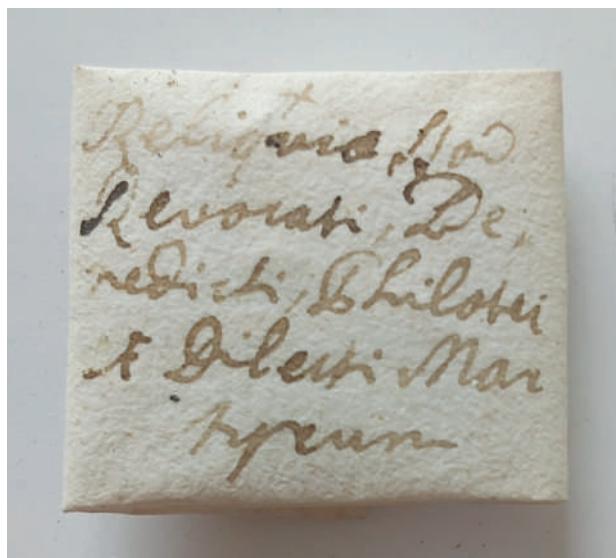 Reliquiæ, SSor̄
Revocati, Be,
nedicti, Philotei
& Dilecti Mar
tyrum